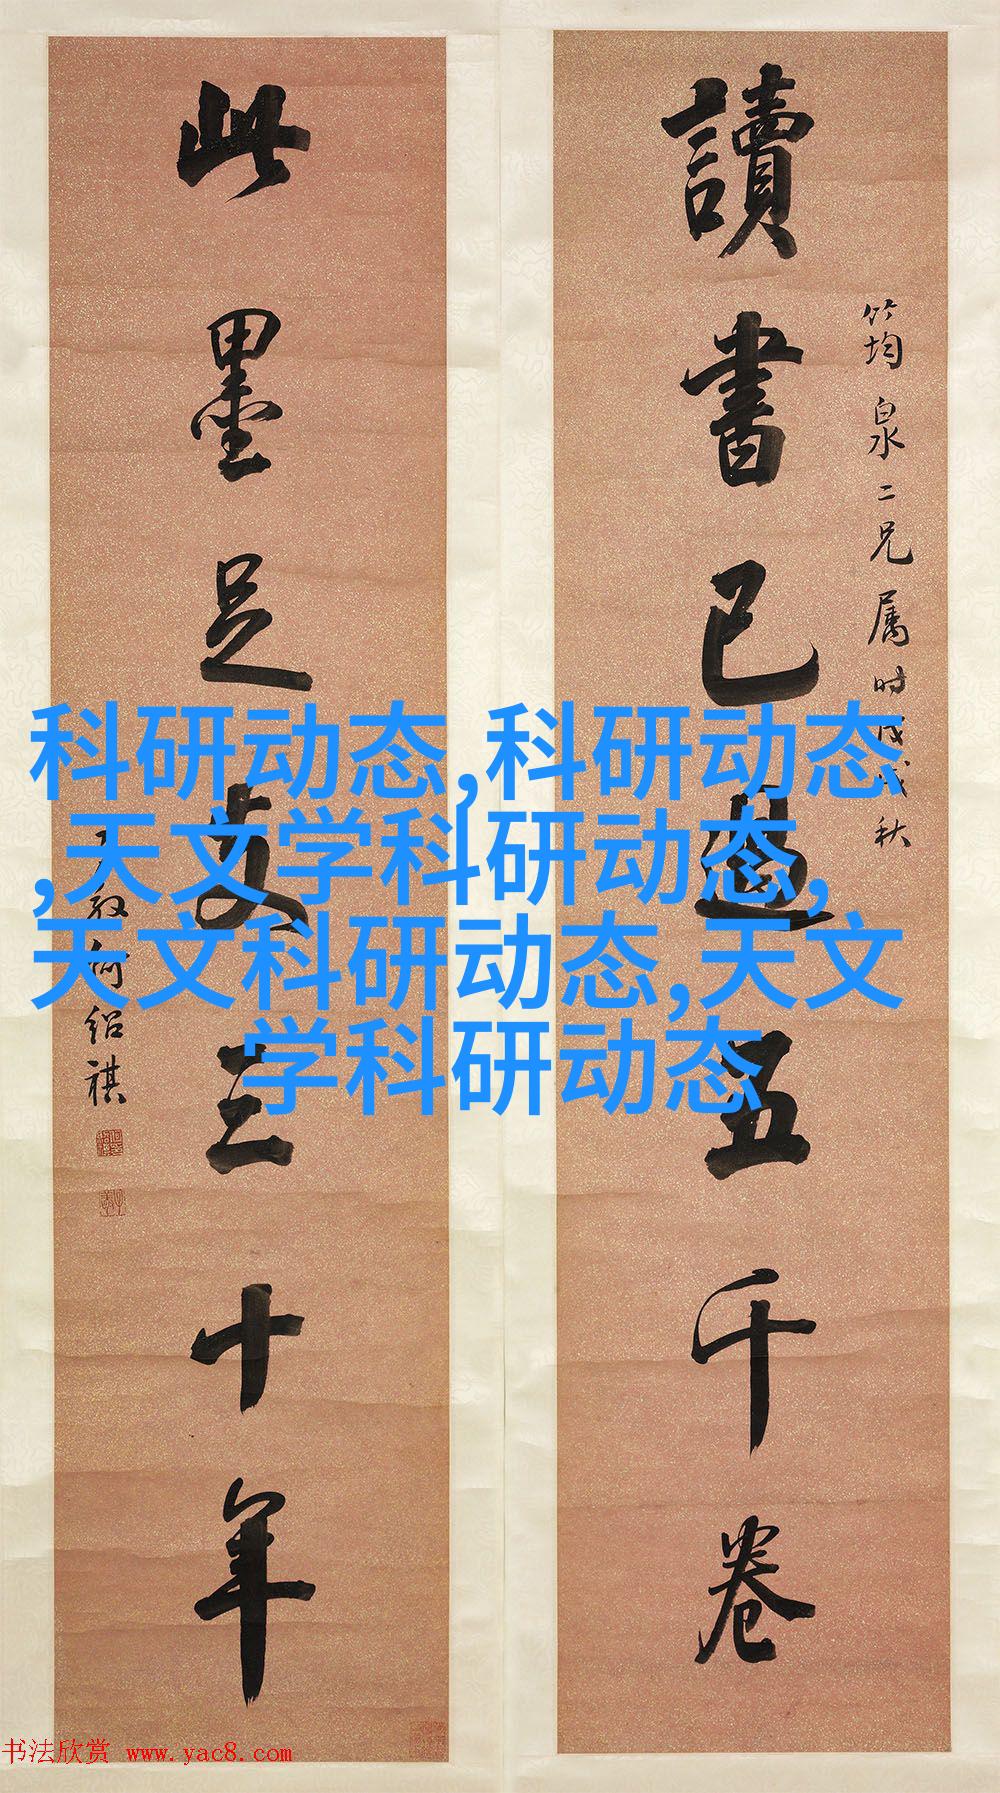 讀書已過五千卷
竹均泉二兄属时戊戌秋
此墨足支三十年
弟何绍祺
科研动态,科研动态
,天文学科研动态,
天文科研动态,天文
学科研动态
书法欣赏 www.yac8.com